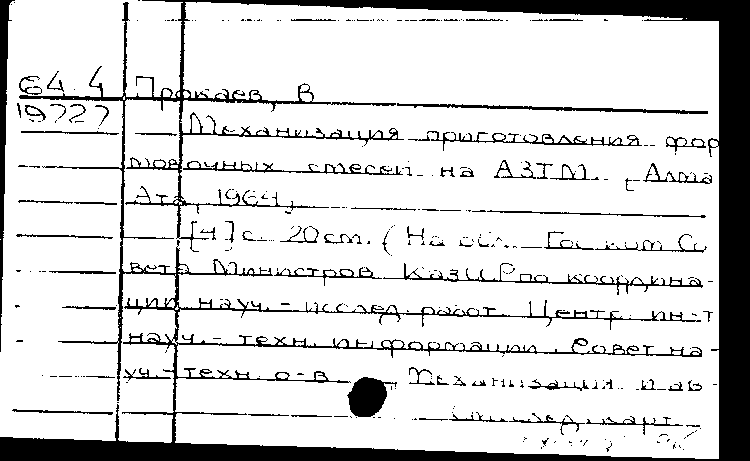 64.4 Прокаев, В
19727
Механизация приготовления фор
мовочных смесей на АЗТМ. [Алма
Ата, 1964]
[4] с. 20 см. (На обл. Гос ком Со
вета Министров КазССР по координа-
ции науч.-исслед. работ. Центр. ин-т
науч.-техн. информации. Совет на-
уч.-техн. о-в. Механизация и ав-
См. след. карт.